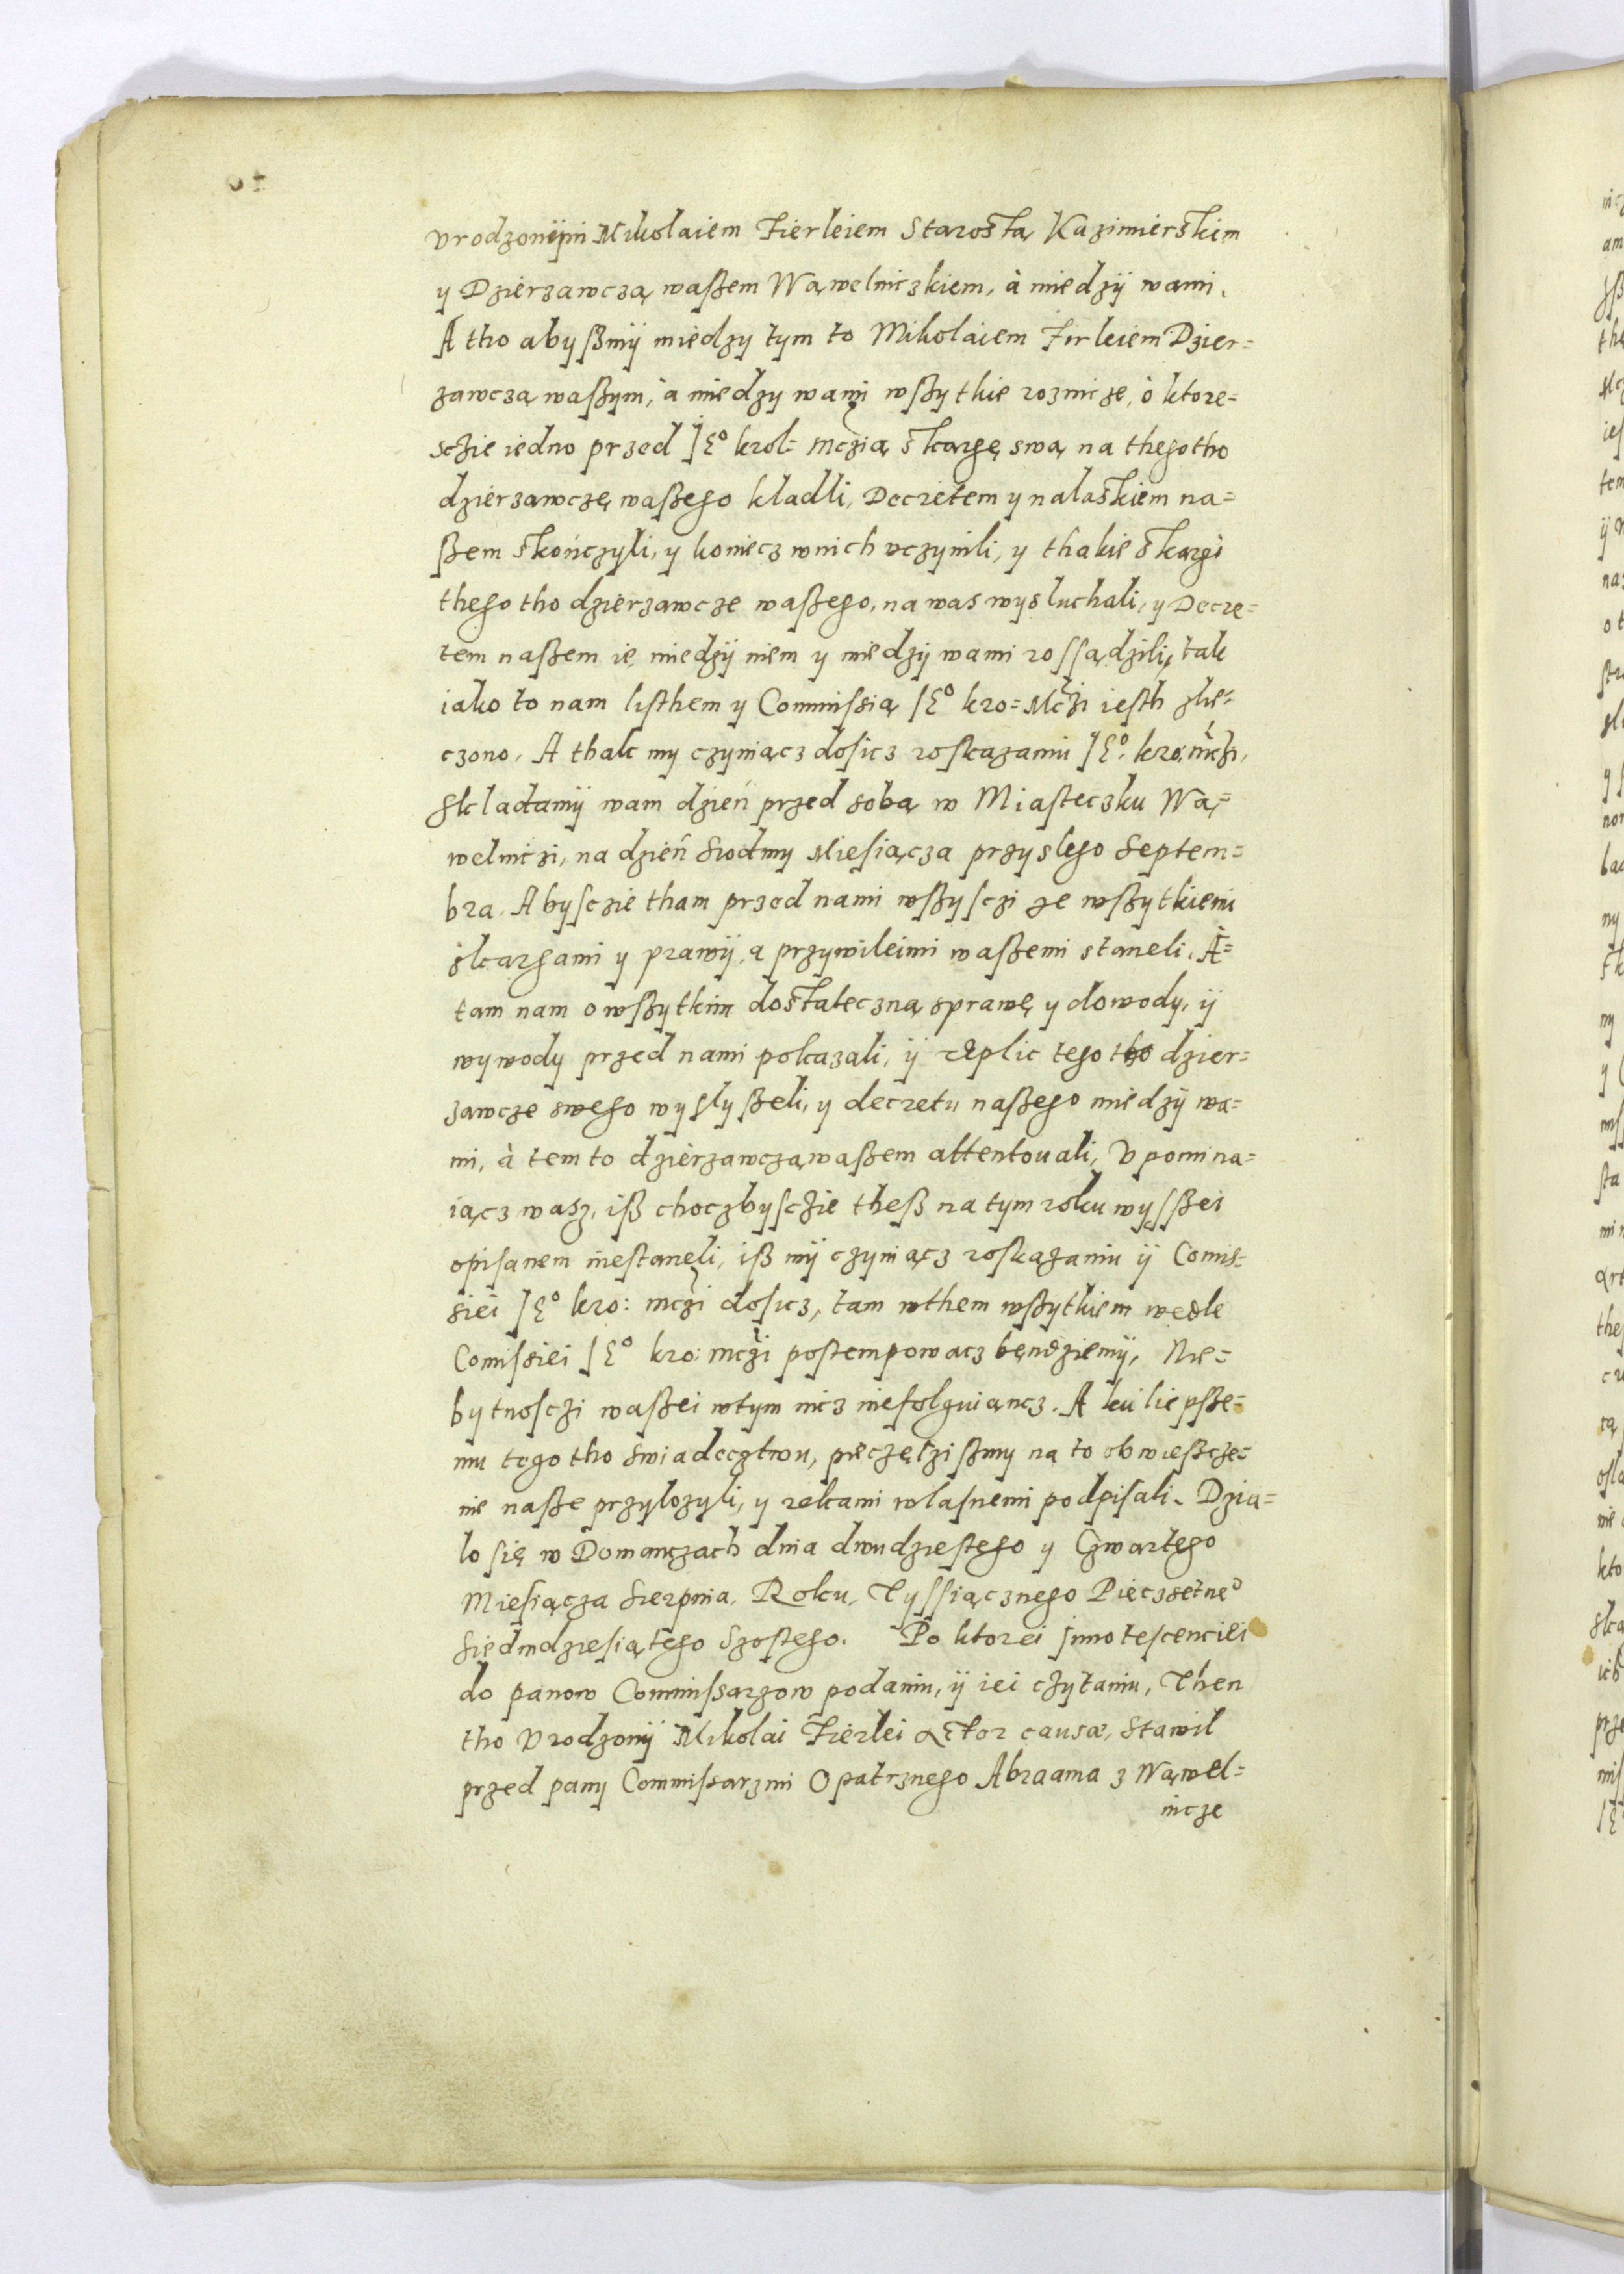 vrodzonÿm Mikolaiem Fierleiem Starostą Kazimierskim
y Dzierzawczą waßem Wąwelniczkiem, à miedzÿ wami.
A tho abyßmÿ miedzy tym to Mikolaiem Firleiem Dzier=
zawczą waßym, à miedzy wami wßytkie roznicze, ò ktore=
sczie iedno przed JE° krol= mczią skargę swą na thegotho
dzierzawczę waßego kladli, Decretem y nalaskiem na=
ßem skończyli, y koniecz wnich vczynili, y thakie skargi
thego tho dzierzawcze waßego, na was wysluchali, y Decre=
tem naßem ie miedzÿ niem y miedzÿ wami rossądzili, tak
iako to nam listhem y Commissią JE° kro= Mczi iesth zle=
czono. A thak my czyniącz dosicz roskazaniu JE° kro: mczi,
skladamÿ wam dzień przed sobą w Miasteczku Wą=
welniczi, na dzień siodmy Miesiącza przyslego Septem=
bra. Abysczie tham przed nami wßysczi ze wßytkiemi
skargami y prawÿ, a przywileimi waßemi staneli. A=
tam nam o wßytkim dostateczną sprawę y dowody, ÿ
wywody przed nami pokazali, ÿ replic tego tho dzier=
zawcze swego wyslyßeli, y decretu naßego miedzÿ wa=
mi, à tem to dzierzawczą waßem attentouali, Vpomina=
iącz wasz, iß choczbysczie theß na tym roku wyssßei
opisanem niestaneli, iß mÿ czyniącz roskazaniu ÿ Comis=
siei JE° kro: mczi dosicz, tam wthem wßytkiem wedle
Comissiei JE° kro: mczi postempowacz bęndziemÿ, Nie=
bytnosczi waßei wtym nicz niefolguiąncz. A ku liepße=
mu tego tho swiadecztwu, pieczęczißmy na to obwiesczze=
nie naße przylozyli, y rekami wlasnemi podpisali. Dzia=
lo się w Domanczach dnia dwudziestego y Czwartego
Miesiącza Sierpnia, Roku, Tyssiącznego Pieczsetne°
Siedmdziesiątego Szostego. Po ktorei innotescenciei
do panow Commissarzow podaniu, ÿ iei czytaniu, Then
tho Vrodzonÿ Mikolai Fierlei Actor causæ, stawil
przed pany Commissarzmi Opatrznego Abraama z Wąwel=
nicze